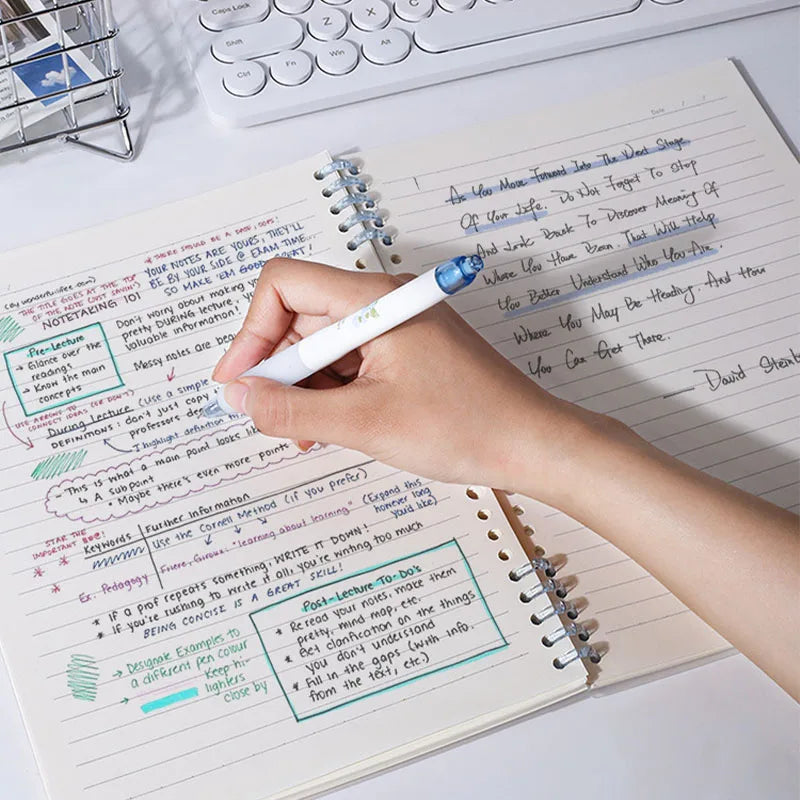 Caps Lock
Shift
Z
X
C
Ctrl
Fn
Win
Alt
(by wonderfullifee.com)
* THERE SHOULD BE A DATE, OOPS!
THE TITLE GOES AT THE TOP
OF THE NOTE (DUST SAVIN!)
NOTETAKING 101
YOUR NOTES ARE YOURS, THEY'LL
BE BY YOUR SIDE @ EXAM TIME...
SO MAKE 'EM GOOD
Pre-Lecture
→ Glance over the
readings
→ Know the main
concepts
Don't worry about making
pretty DURING lecture,
valuable information!
Messy notes are
USE ARROWS TO
CONNECT IDEAS (OR DON'T)
During lecture (Use a simple
DEFINITIONS: don't just copy
professors
I highlight definition
- This is what a main point looks
↳ A subpoint
* Maybe there's even more points
STAR THE
IMPORTANT
Keywords
Further Information
Use the Cornell Method (if you prefer)
Ex. Pedagogy
Friere, Giroux: - learning about learning"
(Expand this
however long
you'd like)
* If a prof repeats something, WRITE IT DOWN!
* If you're rushing to write it all, you're writing too much
BEING CONCISE IS A GREAT SKILL!
→ Designate Examples to
a different pen colour
→ Keep hi-
lighters
close by
Post-Lecture To-Do's
* Reread your notes, make them
pretty, mind map, etc.
* Get clarification on the things
you don't understand
* Fill in the gaps (with info.
from the text, etc)
Date / /
As You Move Forward Into The Next Stage
Of Your Life. Do Not Forget To Stop
And Look Back To Discover Meaning Of
Where You Have Been. That Will Help
You Better Understand Who You Are.
Where You May Be Heading. And How
You Can Get There.
— David